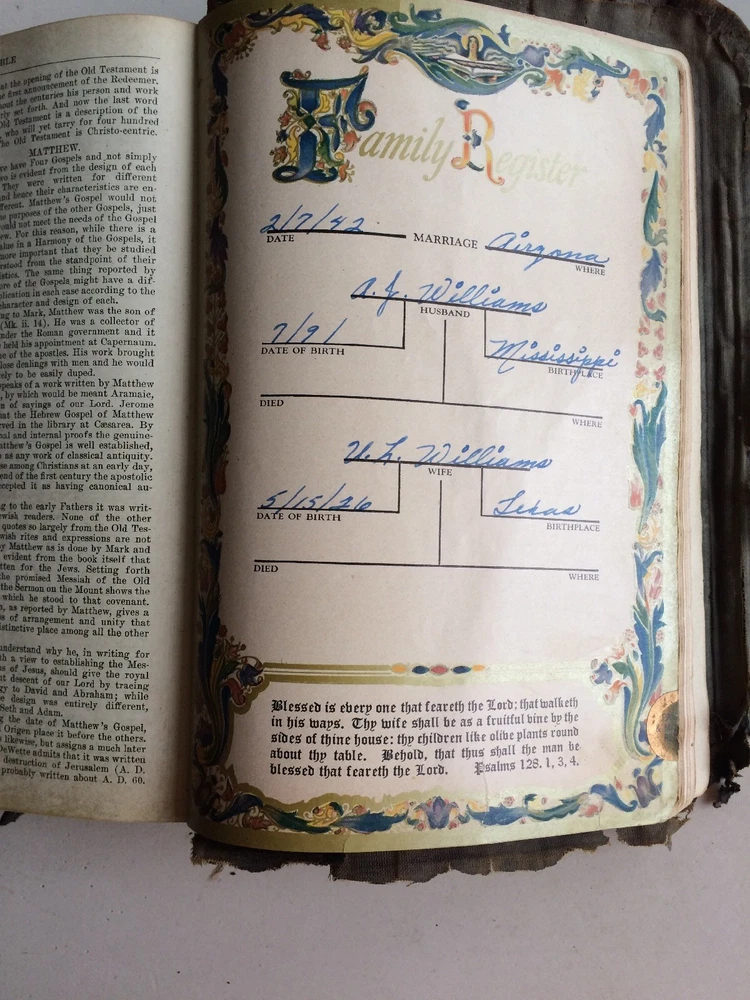 BLE
at the opening of the Old Testament is
first announcement of the Redeemer.
out the centuries his person and work
rly set forth. And now the last word
Old Testament is a description of the
, who will yet tarry for four hundred
he Old Testament is Christo-centric.
MATTHEW.
ve have Four Gospels and not simply
wo is evident from the design of each
They were written for different
nd hence their characteristics are en-
fferent. Matthew's Gospel would not
purposes of the other Gospels, just
ould not meet the needs of the Gospel
ew. For this reason, while there is a
alue in a Harmony of the Gospels, it
more important that they be studied
rstood from the standpoint of their
istics. The same thing reported by
ore of the Gospels might have a dif-
plication in each case according to the
character and design of each.
ng to Mark, Matthew was the son of
(Mk. ii. 14). He was a collector of
nder the Roman government and it
held his appointment at Capernaum.
e of the apostles. His work brought
lose dealings with men and he would
ely to be easily duped.
peaks of a work written by Matthew
, by which would be meant Aramaic,
n of sayings of our Lord. Jerome
at the Hebrew Gospel of Matthew
rved in the library at Cæsarea. By
nal and internal proofs the genuine-
atthew's Gospel is well established,
as any work of classical antiquity.
se among Christians at an early day,
end of the first century the apostolic
ccepted it as having canonical au-
g to the early Fathers it was writ-
ewish readers. None of the other
quotes so largely from the Old Tes-
wish rites and expressions are not
y Matthew as is done by Mark and
evident from the book itself that
tten for the Jews. Setting forth
the promised Messiah of the Old
the Sermon on the Mount shows the
which he stood to that covenant.
, as reported by Matthew, gives a
s of arrangement and unity that
istinctive place among all the other
understand why he, in writing for
th a view to establishing the Mes-
s of Jesus, should give the royal
t descent of our Lord by tracing
gy to David and Abraham; while
e design was entirely different,
Seth and Adam.
g the date of Matthew's Gospel,
Origen place it before the others.
likewise, but assigns a much later
DeWette admits that it was written
destruction of Jerusalem (A. D.
probably written about A. D. 60.
Family Register
2/7/42 MARRIAGE Airzona
DATE WHERE
A. J. Williams
HUSBAND
7/9/
DATE OF BIRTH
Mississippi
BIRTHPLACE
DIED WHERE
V. L. Williams
WIFE
5/15/26
DATE OF BIRTH
Texas
BIRTHPLACE
DIED WHERE
Blessed is every one that feareth the Lord; that walketh
in his ways. Thy wife shall be as a fruitful vine by the
sides of thine house: thy children like olive plants round
about thy table. Behold, that thus shall the man be
blessed that feareth the Lord. Psalms 128. 1, 3, 4.